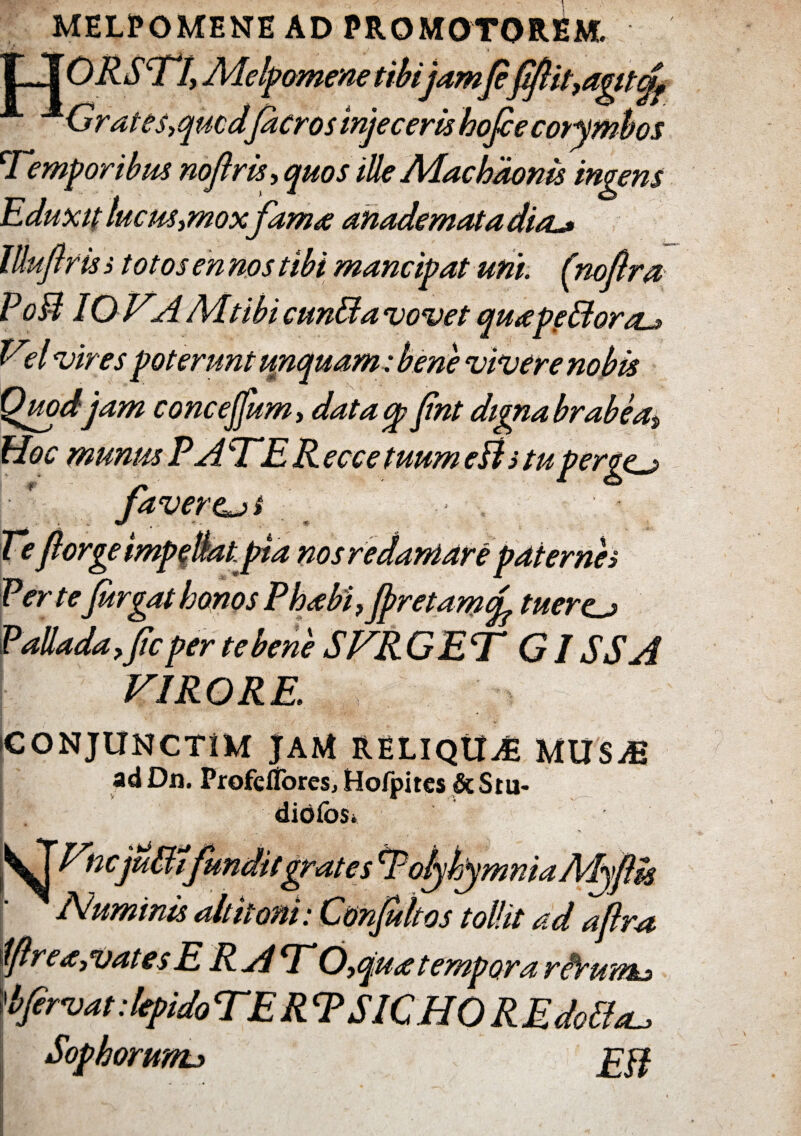 MELPOMENE AD PROMOTOREM.
HORSTI, Melpomene tibi jam ſe ſiſtit, agitq́;
Grates, quòd ſacros injeceris hoſce corymbos
Temporibus noſtris, quos ille Machäonis ingens
Eduxit lucus, mox famæ anademata dia
Illuſtris; totos en nos tibi mancipat uni. (noſtra
Poſt IOVAM tibi cuncta vovet quæ pectora
Vel vires poterunt unquam: benè vivere nobis
Quod jam conceſſum, data q; ſint digna brabéa,
Hoc munus PATER ecce tuum eſt; tu perge
favere;
Te ſtorge impellat pia nos redamare paternè;
Per te ſurgat honos Phæbi, ſpretamq́; tuere
Pallada, ſic per te benè SVRGET GISSA
VIRORE.
CONJUNCTIM JAM RELIQUÆ MUSÆ
ad Dn. Profeſſores, Hoſpites & Stu-
dioſos.
NVnc juſti fundit grates Polyhymnia Myſtis
Numinis altitoni: Conſultos tollit ad aſtra
Iſtreæ, vates ERATO, quæ tempora rerum
bſervat: lepido TERPSICHORE docta
Sophorum Eſt